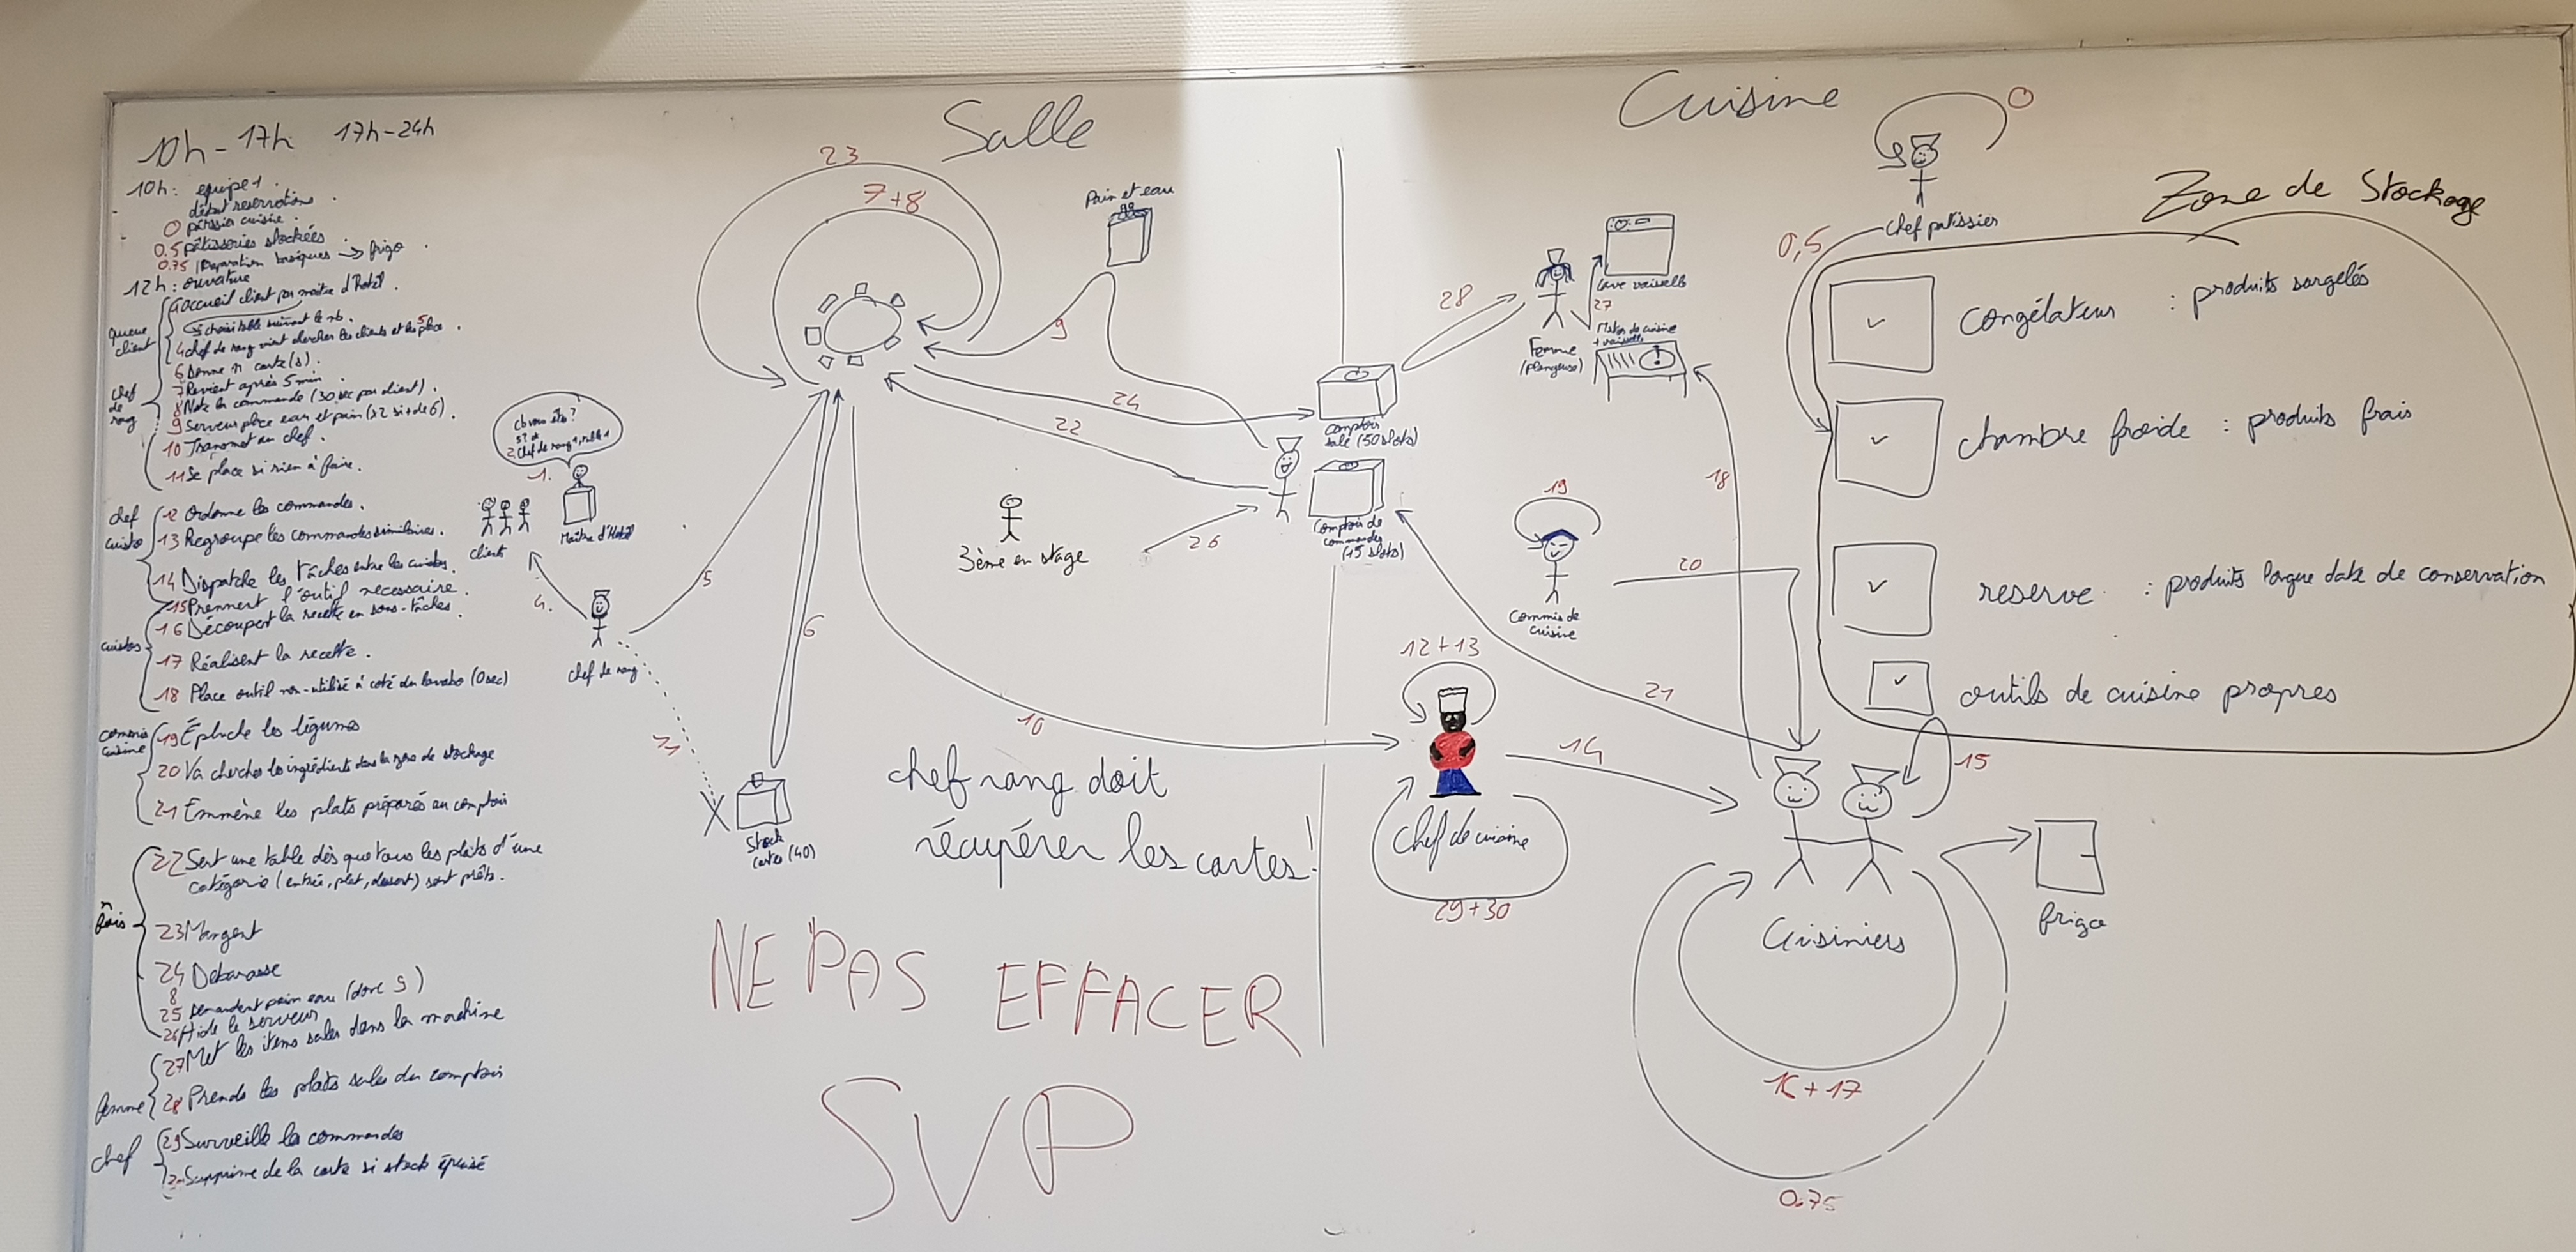 10h - 17h 17h-24h
10h: equipe 1
début reservations
0 pâtissier cuisine
0.5 pâtisseries stockées
0.75 Préparation basiques -> frigo
12h: ouverture
queue client
accueil client par maître d'hôtel.
choisi table suivant le nb.
4 chef de rang vient chercher les clients et les place 5
chef de rang
6 Donne n carte(s).
7 Revient après 5 min.
8 Note la commande (30 sec par client).
9 Serveur place eau et pain (x2 si + de 6).
10 Transmet au chef.
11 Se place si rien à faire.
chef cuisto
12 Ordonne les commandes.
13 Regroupe les commandes similaires.
14 Dispatche les tâches entre les cuistos.
cuistos
15 Prennent l'outil necessaire.
16 Découpent la recette en sous-tâches.
17 Réalisent la recette.
18 Place outil non-utilisé à coté du lavabo (0 sec)
commis cuisine
19 Épluche les légumes
20 Va chercher les ingrédients dans la zone de stockage
21 Emmène les plats préparés au comptoir
n fois
22 Sert une table dès que tous les plats d'une
catégorie (entrée, plat, dessert) sont prêts.
23 Mangent
24 Débarasse
8
25 Demandent pain eau (donc 9)
26 Aide le serveur
femme
27 Met les items sales dans la machine
28 Prends les plats sales du comptoir
chef
29 Surveille les commandes
Supprime de la carte si stock épuisé
Salle
23
7+8
Pain et eau
9
24
22
26
3ème en stage
1.
client
Maître d'Hôtel
4.
5
6
chef de rang
11
Stock
cartes (40)
10
chef rang doit
récupérer les cartes!
NE PAS EFFACER
SVP
comptoir
sale (50 slots)
comptoir de
commandes
(15 slots)
Cuisine
0
chef patissier
0,5
28
Femme
(plongeuse)
lave vaisselle
27
Matos de cuisine
+ vaisselle
18
19
Commis de
cuisine
20
21
12+13
14
chef de cuisine
29+30
15
Cuisiniers
frigo
16+17
0.75
Zone de Stockage
congélateur : produits surgelés
chambre froide : produits frais
reserve : produits longue date de conservation
outils de cuisine propres